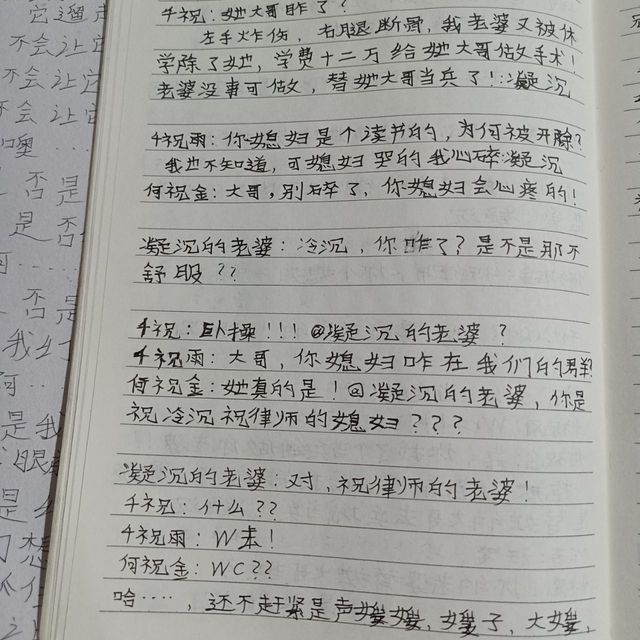 它遛声
不会让它
不会让它
不会让它
噢...
否是
是否
......
否是
我幺
啊...
是我
眼
是幺
门想
千祝：她大哥咋了？
左手炸伤，右腿断骨，我老婆又被休
学除了她，学费十二万给她大哥做手术！
老婆没事可做，替她大哥当兵了！：凝沉
千祝雨：你媳妇是个读书的，为何被开除？
我也不知道，可媳妇哭的我心碎：凝沉
何祝金：大哥，别碎了，你媳妇会心疼的！
凝沉的老婆：冷沉，你咋了？是不是那不
舒服？？
千祝：卧操！！！@凝沉的老婆？
千祝雨：大哥，你媳妇咋在我们的群！
何祝金：她真的是！@凝沉的老婆，你是
祝冷沉祝律师的媳妇？？？
凝沉的老婆：对，祝律师的老婆！
千祝：什么？？
千祝雨：W去！
何祝金：WC？？
哈····，还不赶紧是声嫂嫂，嫂子，大嫂，